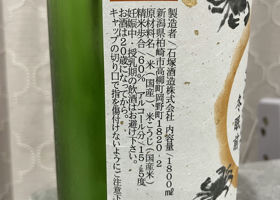 製造者/石塚酒造株式会社 内容量(1800ml)
新潟県柏崎市高柳町岡野町1820-2
原材料名/米(国産)、米こうじ(国産米)
精米歩合/60% アルコール分/15.5度
妊娠中・授乳期の飲酒はお避け下さい。
お酒は20歳になってから。
キャップの切り口で指を傷付けないようにご注意下